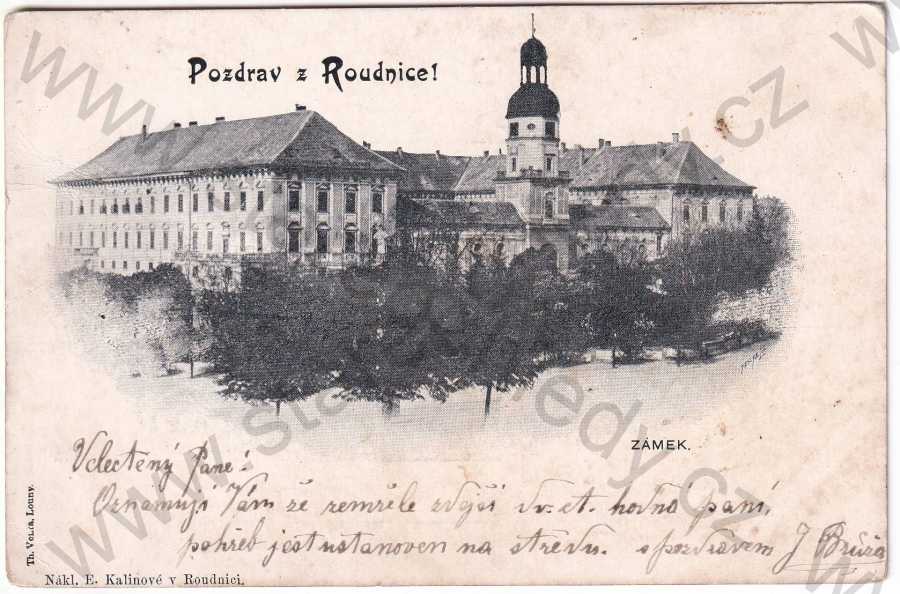 Pozdrav z Roudnice!
ZÁMEK.
Velectěný Pane!
Oznamuji Vám že zemřela zdejší hodná paní,
pohřeb jest ustanoven na středu. s pozdravem J Brůža
Th. Louny.
Nákl. E. Kalinové v Roudnici.